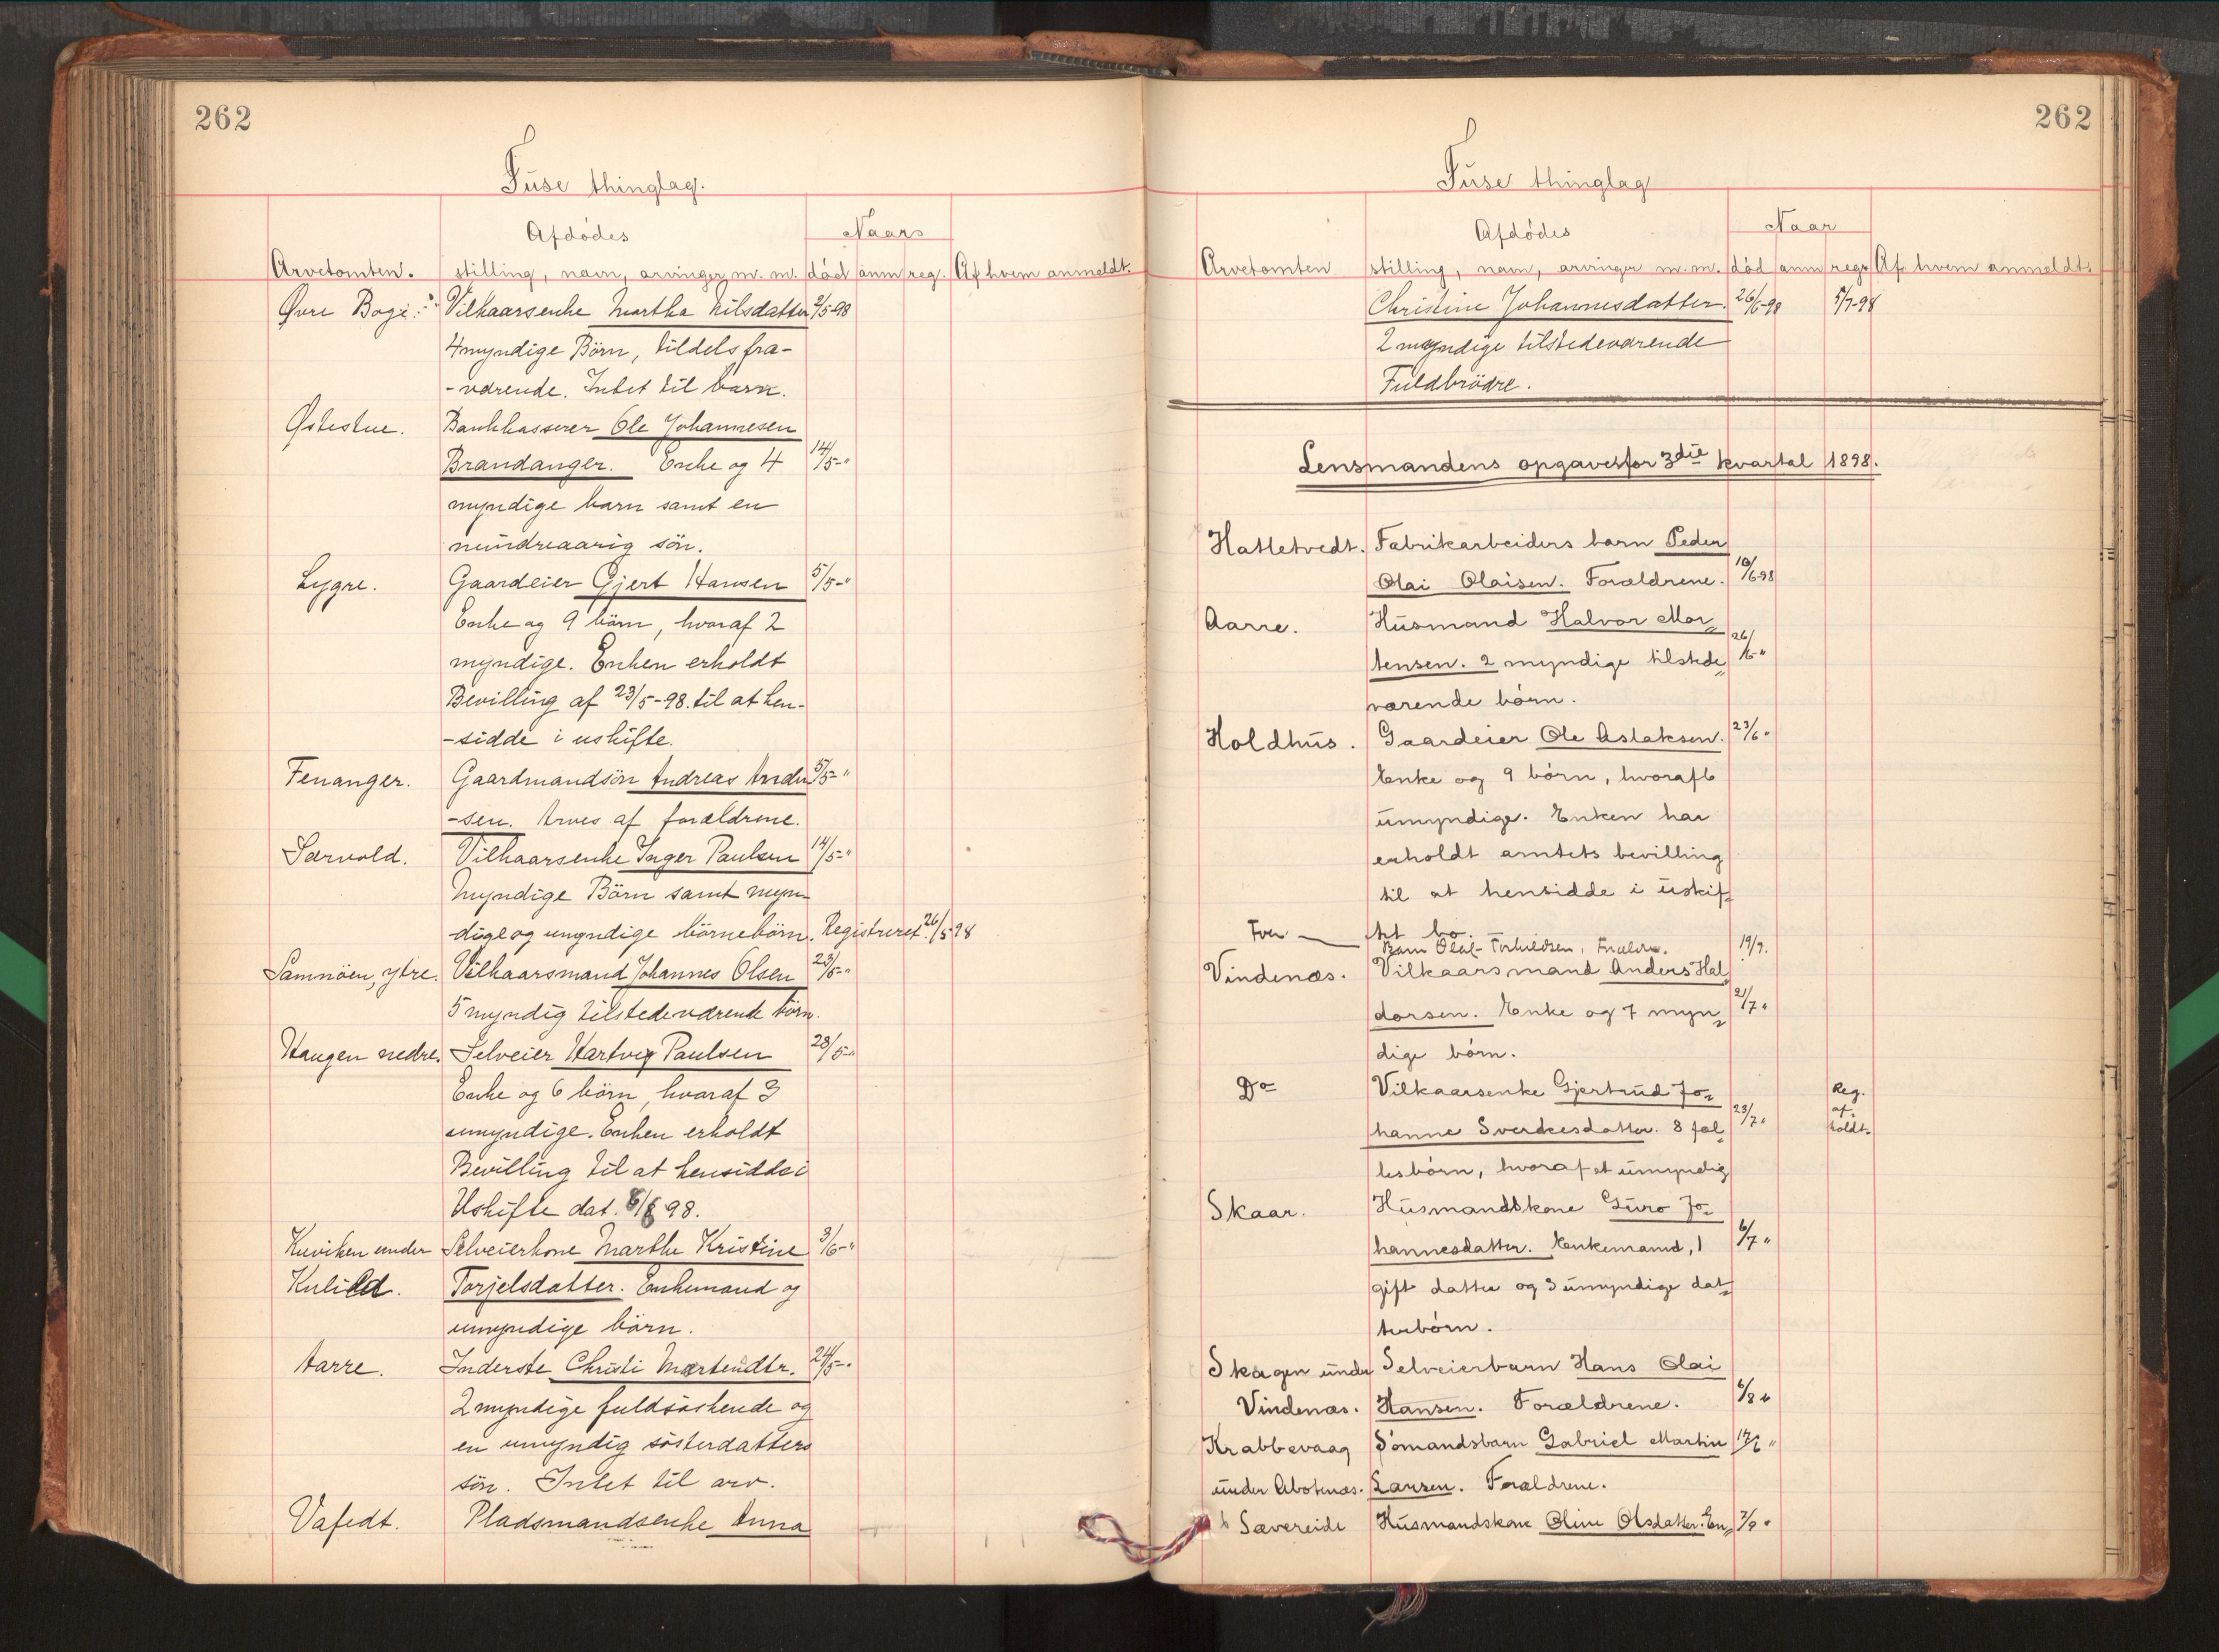 262
Fuse thinglag.
Afdödes
Naars
Arvetomten.
stilling, navn, arvinger m. m.
död
anm
reg.
Af hvem anmeldt.
Øvre Boge Vilkaarsenke Martha Nilsdatter 2/5-98
4 myndige Börn, tildels fra-
-værende. Intet til barn.
Østestue. Bankkasserer Ole Johannesen
Brandanger. Enke og 4 14/5-"
myndige barn samt en
mindreaarig sön.
Lygre. Gaardeier Gjert Hansen 5/5-"
Enke og 9 börn, hvoraf 2
myndige. Enken erholdt
Bevilling af 23/5-98. til at hen-
-sidde i uskifte.
Fenanger. Gaardmandsön Andreas Ander 5/5-"
-sen. Arves af forældrene.
Særvold. Vilkaarsenke Inger Paulsen 14/5-"
Myndige Börn samt myn-
dige og umyndige börnebörn. Registreret 26/5 98
Samnöen, ytre. Vilkaarsmand Johannes Olsen 23/5-"
5 myndig tilstedeværende börn.
Haugen nedre. Selveier Hartvig Paulsen 28/5-"
Enke og 6 börn, hvoraf 3
umyndige. Enken erholdt
Bevilling til at hensidde i
Uskifte dat. 6/6 98.
Kuviken under Selveierkone Marthe Kristine 3/6-"
Kulild. Torjelsdatter. Enkemand og
umyndige börn.
Aarre. Inderste Christi Mortendtr. 24/5-"
2 myndige fuldsöskende og
en umyndig sösterdatters
sön. Intet til arv.
Vafedt. Pladsmandsenke Anna
262
Fuse thinglag
Afdödes
Naar
Arvetomten
stilling, navn, arvinger m. m.
död
anm
regs
Af hvem anmeldt.
Christine Johannesdatter. 26/5-98 5/7-98
2 myndige tilstedeværende
Fuldbrödre.
Lensmandens opgaver for 3die kvartal 1898.
Hatletvedt. Fabrikarbeiders barn Peder
Olai Olaisen. Forældrene. 16/6-98
Aarre. Husmand Halvor Mor„
tensen. 2 myndige tilstede„ 26/6"
værende börn.
Holdhus. Gaardeier Ole Aslaksen. 23/6"
Enke og 9 börn, hvoraf 6
umyndige. Enken har
erholdt amtets bevilling
til at hensidde i uskif„
tet bo.
Barn Olal Torkildsen, Foreldre. 19/7.
Vindenæs. Vilkaarsmand Anders Hal„
dorsen. Enke og 7 myn„ 21/7"
dige börn.
Do Vilkaarsenke Gjertrud Jo„ Reg.
hanne Sverkesdatter. 8 fæl„ 23/7" af„ holdt.
lesbörn, hvoraf et umyndig
Skaar. Husmandskone Guro Jo„
hannesdatter. Enkemand, 1 6/7"
gift datter og 3 umyndige dat„
terbörn.
Skagen under Selveierbarn Hans Olai
Vindenæs. Hansen. Forældrene. 6/8"
Krabbevaag Sömandsbarn Gabriel Martin 17/6"
under Abotnæs. Larsen. Forældrene.
Sævereide Husmandskone Oline Olsdatter. En„ 7/9"